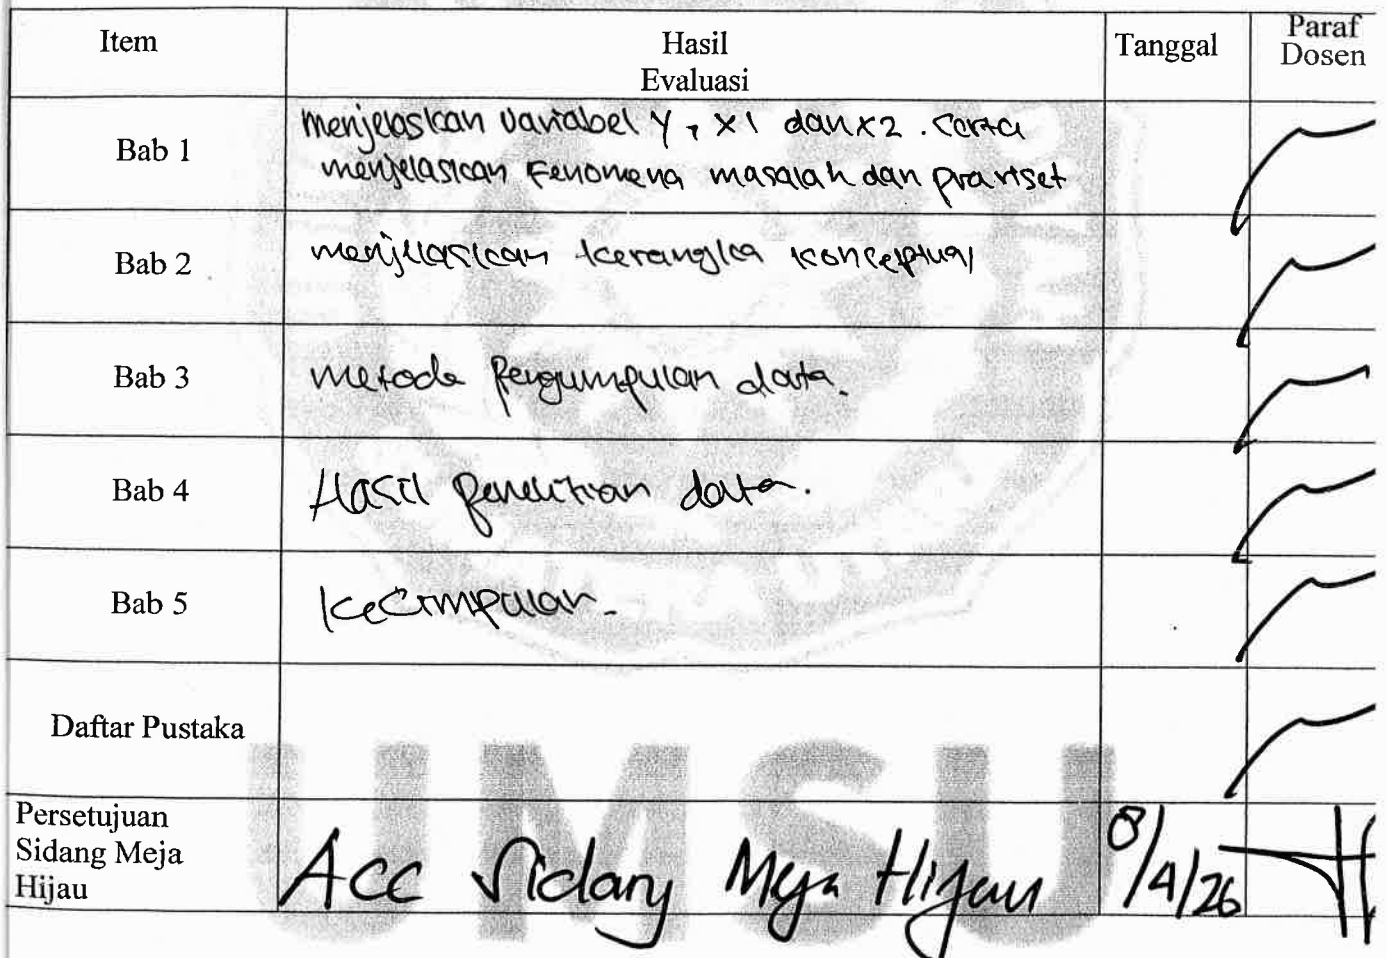 Item
Hasil
Evaluasi
Tanggal
Paraf
Dosen
Bab 1
menjelaskan variabel Y, X1 dan X2. Serta
menjelaskan Fenomena masalah dan prariset
Bab 2
menjelaskan kerangka konseptual
Bab 3
metode pengumpulan data.
Bab 4
Hasil penelitian data.
Bab 5
kecimpulan.
Daftar Pustaka
UMSU
Persetujuan
Sidang Meja
Hijau
Acc Sidang Meja Hijau
8/4/26